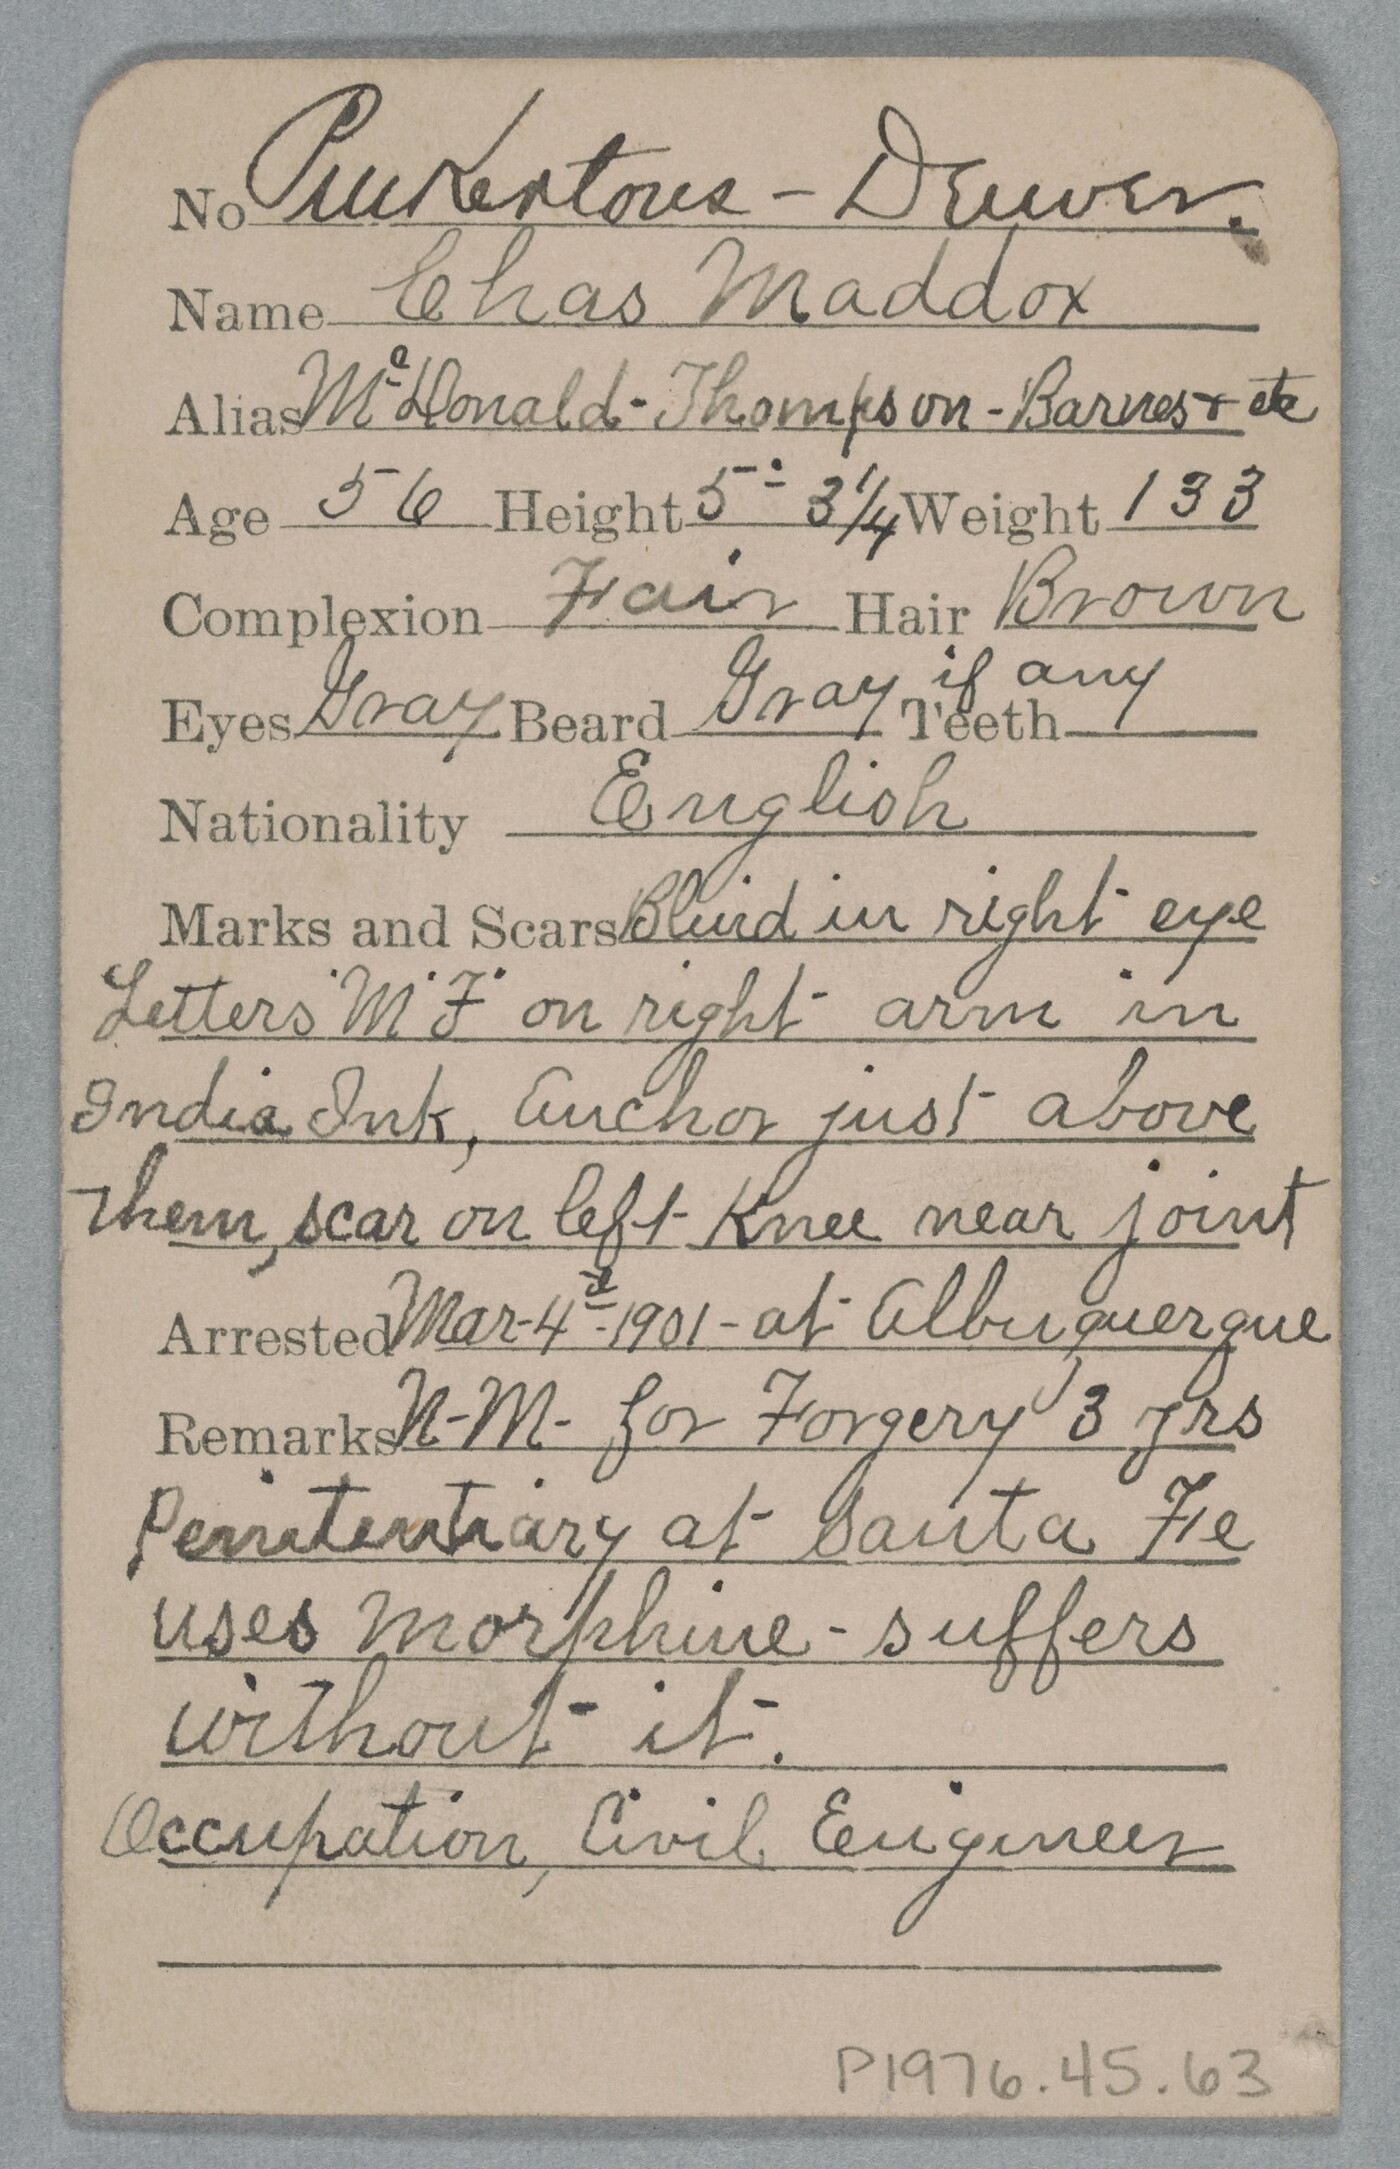 No Pinkertons - Denver.
Name Chas Maddox
Alias McDonald - Thompson - Barnes + etc
Age 56 Height 5-: 3 1/4 Weight 133
Complexion Fair Hair Brown
Eyes Gray Beard Gray if any Teeth
Nationality English
Marks and Scars Blind in right eye
Letters "M" F" on right arm in
India Ink, Anchor just above
them, scar on left Knee near joint
Arrested Mar-4th-1901-at Albuquerque
Remarks N-M- for Forgery 3 yrs
Penitentiary at Santa Fe
uses morphine - suffers
without it.
Occupation, Civil Engineer
P1976.45.63